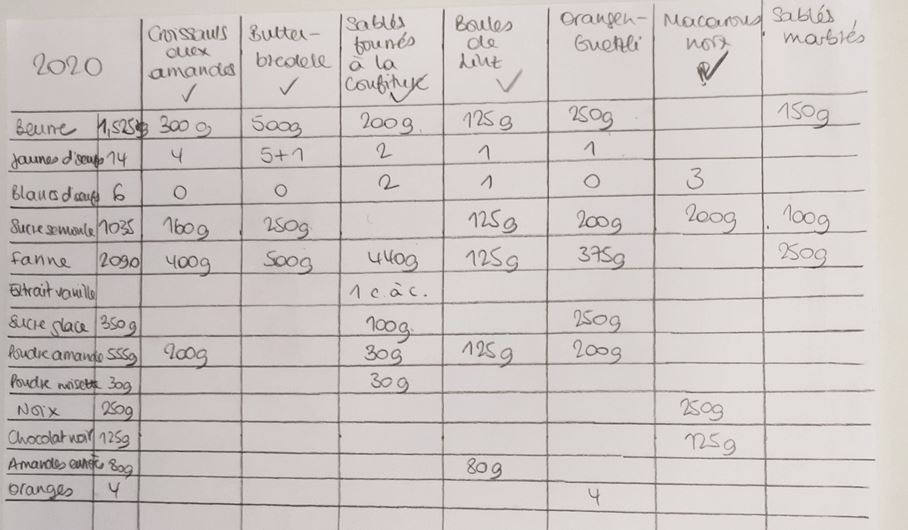 2020 Croissants aux amandes ✓ Butter-bredele ✓ Sablés fourrés à la confiture ✓ Boules de Linz ✓ Orangen-Guetzli Macarons noix ✓ Sablés marbrés
Beurre 1,525kg 300g 500g 200g. 125g 250g 150g
Jaunes d'oeufs 14 4 5+1 2 1 1
Blancs d'oeufs 6 0 0 2 1 0 3
Sucre semoule 1035 160g 250g 125g 200g 200g 100g
Farine 2090 400g 500g 440g 125g 375g 250g
Extrait vanille 1 c. à c.
Sucre glace 350g 100g. 250g
Poudre amande 555g 200g 30g 125g 200g
Poudre noisette 30g 30g
Noix 250g 250g
Chocolat noir 125g 125g
Amandes 80g 80g
Oranges 4 4